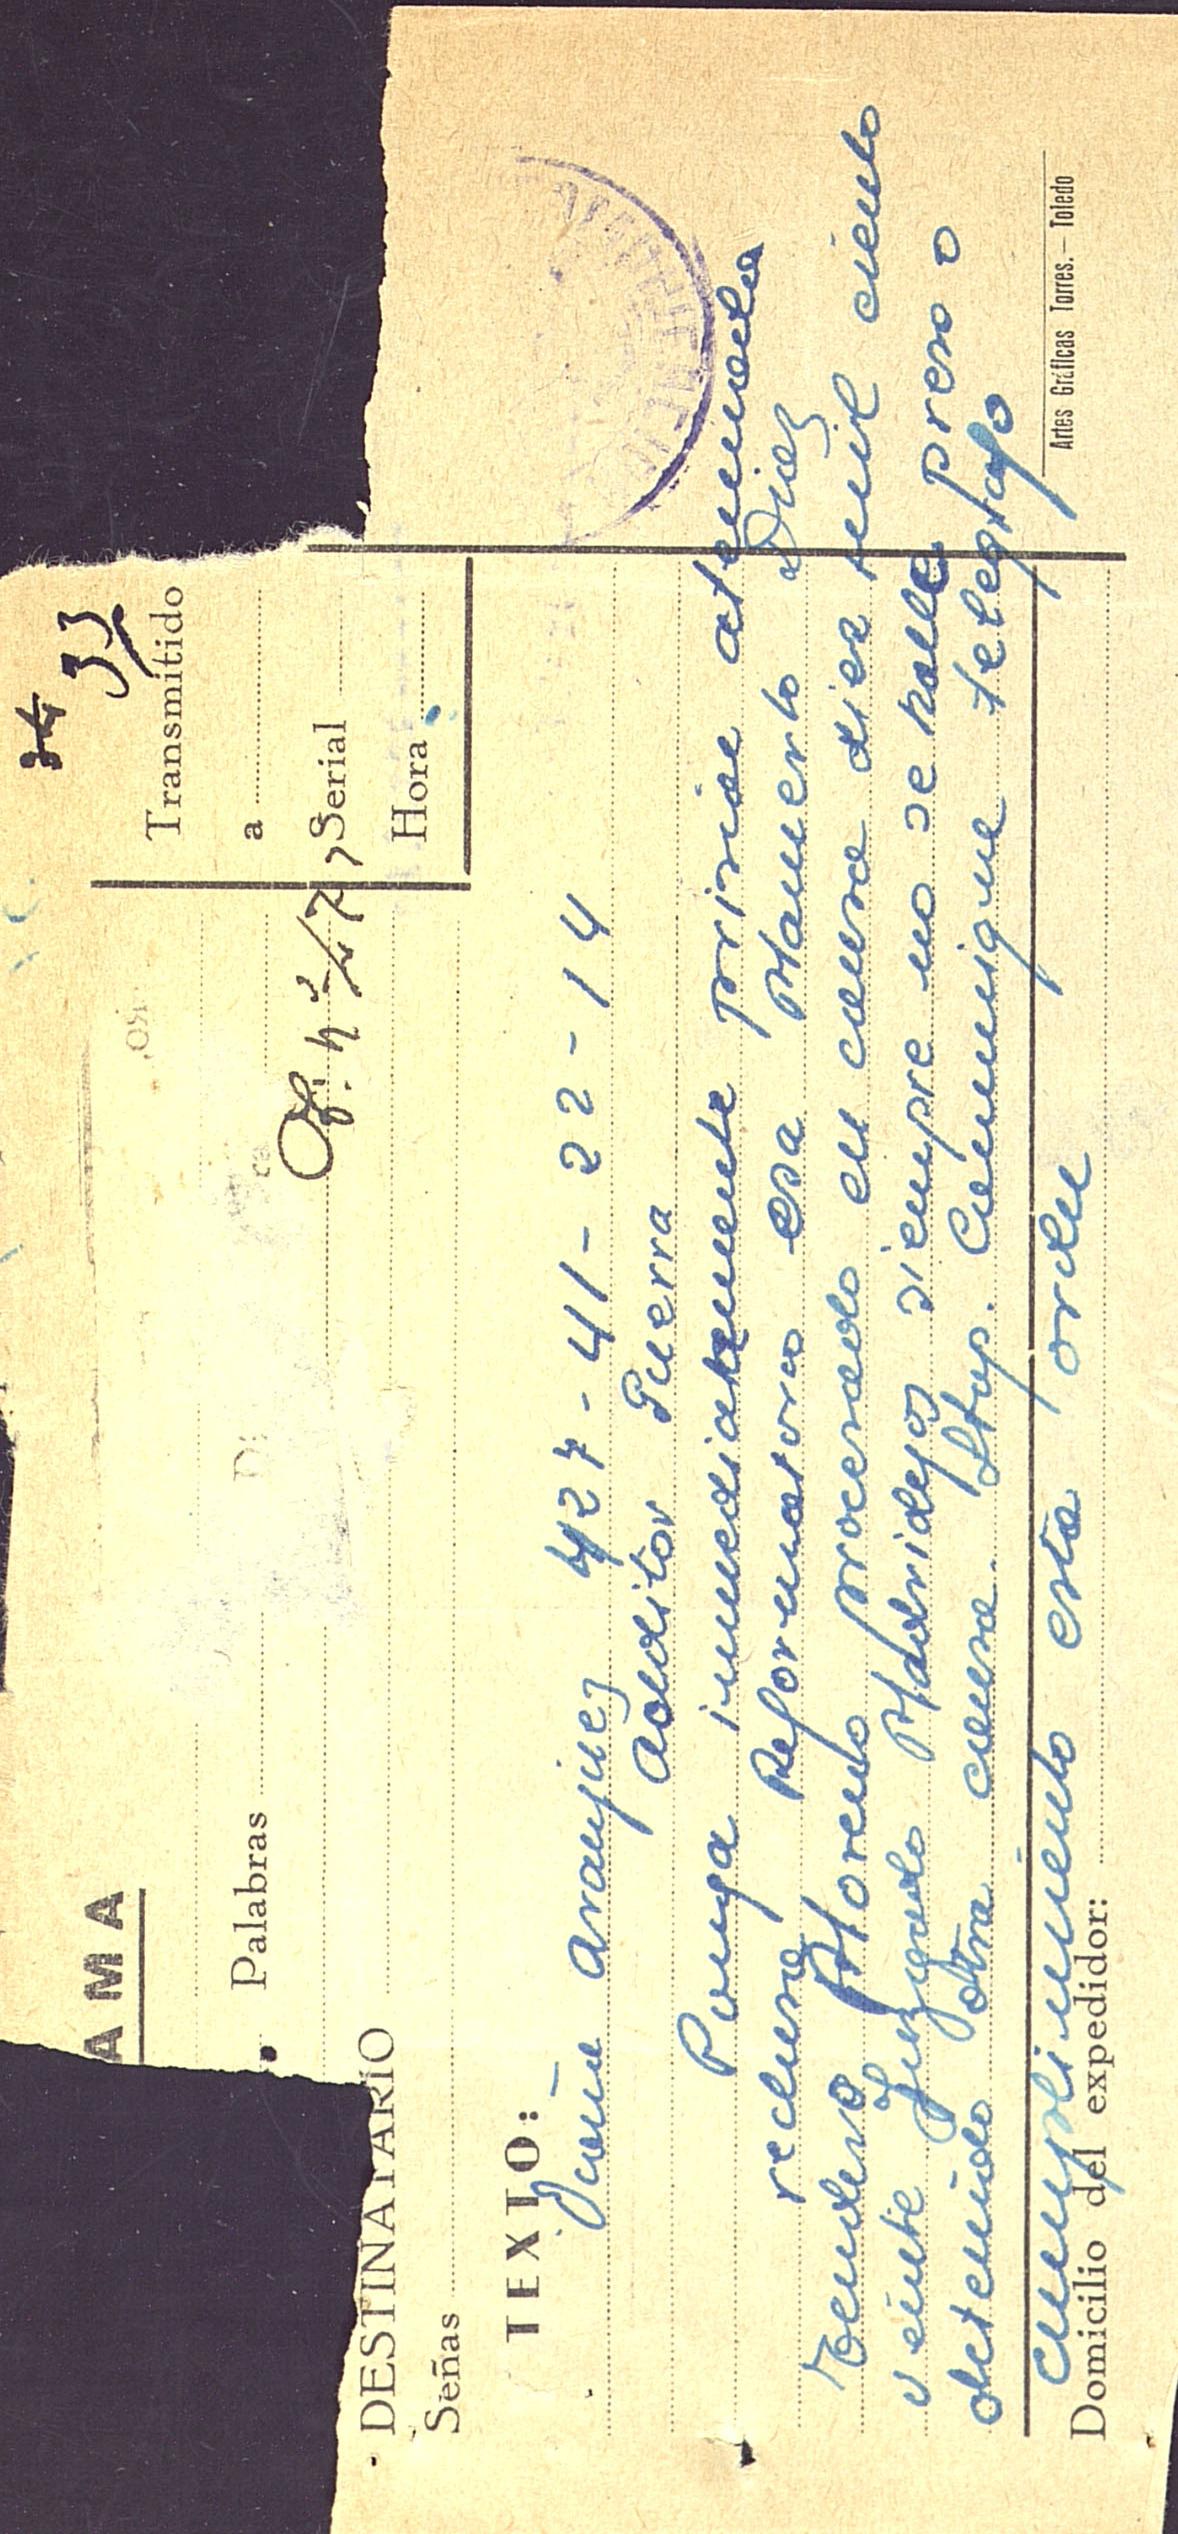 34
33
AMA
Transmitido
a
Palabras
Of. n° 2/47, Serial
DESTINATARIO
Hora
Señas
TEXTO:
Aranjuez 427-41-22-14
Auditor Guerra
Ponga inmediatamente prision atenuada
reclusa Reformatorio esa Mamerto Diaz
Tendero Moreno procesado en causa diez mil ciento
veinte Juzgado Madridejos siempre no se halle preso o
detenido otra causa. Stop. Comunique telegrafo
cumplimiento esta orden
Domicilio del expedidor:
Artes Gráficas Torres.- Toledo